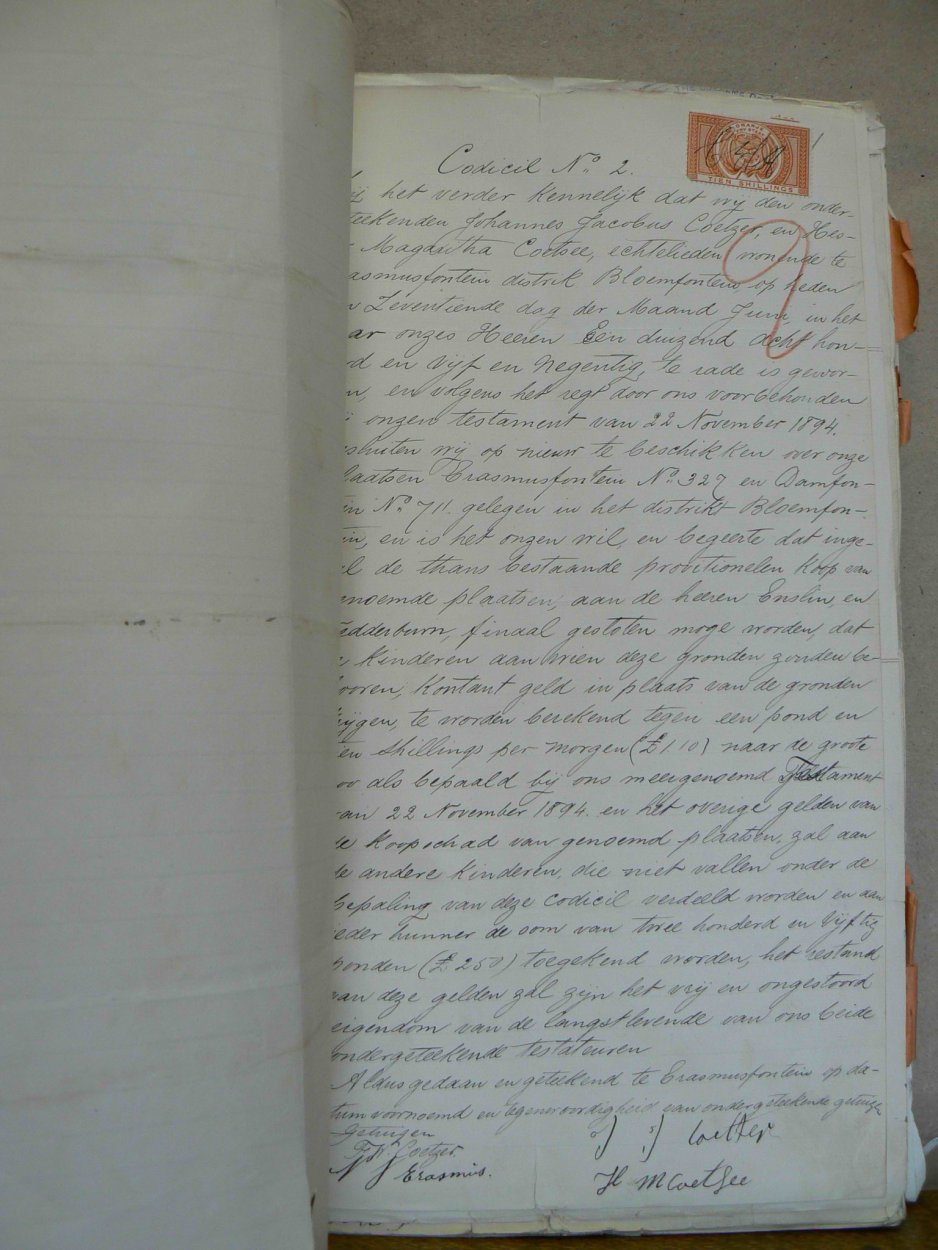 ORANJE
TIEN SHILLINGS
Codicil No. 2.
het verder kennelijk dat wij den onder-
teekenden Johannes Jacobus Coetzer, en Hes-
Magaritha Coetsee, echtelieden wonende te
asmusfontein distrik Bloemfontein op heden
n Zeventiende dag der Maand Juni, in het
ar onzes Heeren Een duizend acht hon-
d en vijf en Negentig, te rade is gewor-
n, en volgens het regt door ons voorbehouden
onzen testament van 22 November 1894.
esluiten wij op nieuw te beschikken over onze
laatsen Erasmusfontein No. 327 en Damfon-
in No. 711. gelegen in het distrikt Bloemfon-
in, en is het onzen wil, en begeerte dat inge-
l de thans bestaande provitionelen Koop van
noemde plaatsen, aan de heeren Enslin, en
edderburn, finaal gesloten moge worden, dat
Kinderen aan wien deze gronden zouden be-
ooren, Kontant geld in plaats van de gronden
ijgen, te worden berekend tegen een pond en
en shillings per morgen (£1.10) naar de groote
oo als bepaald bij ons meergenoemd Testament
an 22 November 1894. en het overige gelden van
de Koopschad van genoemd plaatsen, zal aan
de andere Kinderen, die niet vallen onder de
bepaling van deze codicil verdeeld worden en aan
ieder hunner de som van twee honderd en Vijftig
ponden (£250) toegekend worden, het restand
van deze gelden zal zijn het vrij en ongestoord
eigendom van de langstlevende van ons beide
ondergeteekende testateuren
Aldus gedaan en geteekend te Erasmusfontein op da-
tum voornoemd en tegenwoordigheid van ondergeteekende getuigen
Getuigen
Coetzer
J J Coetzer
Erasmus.
H M Coetsee